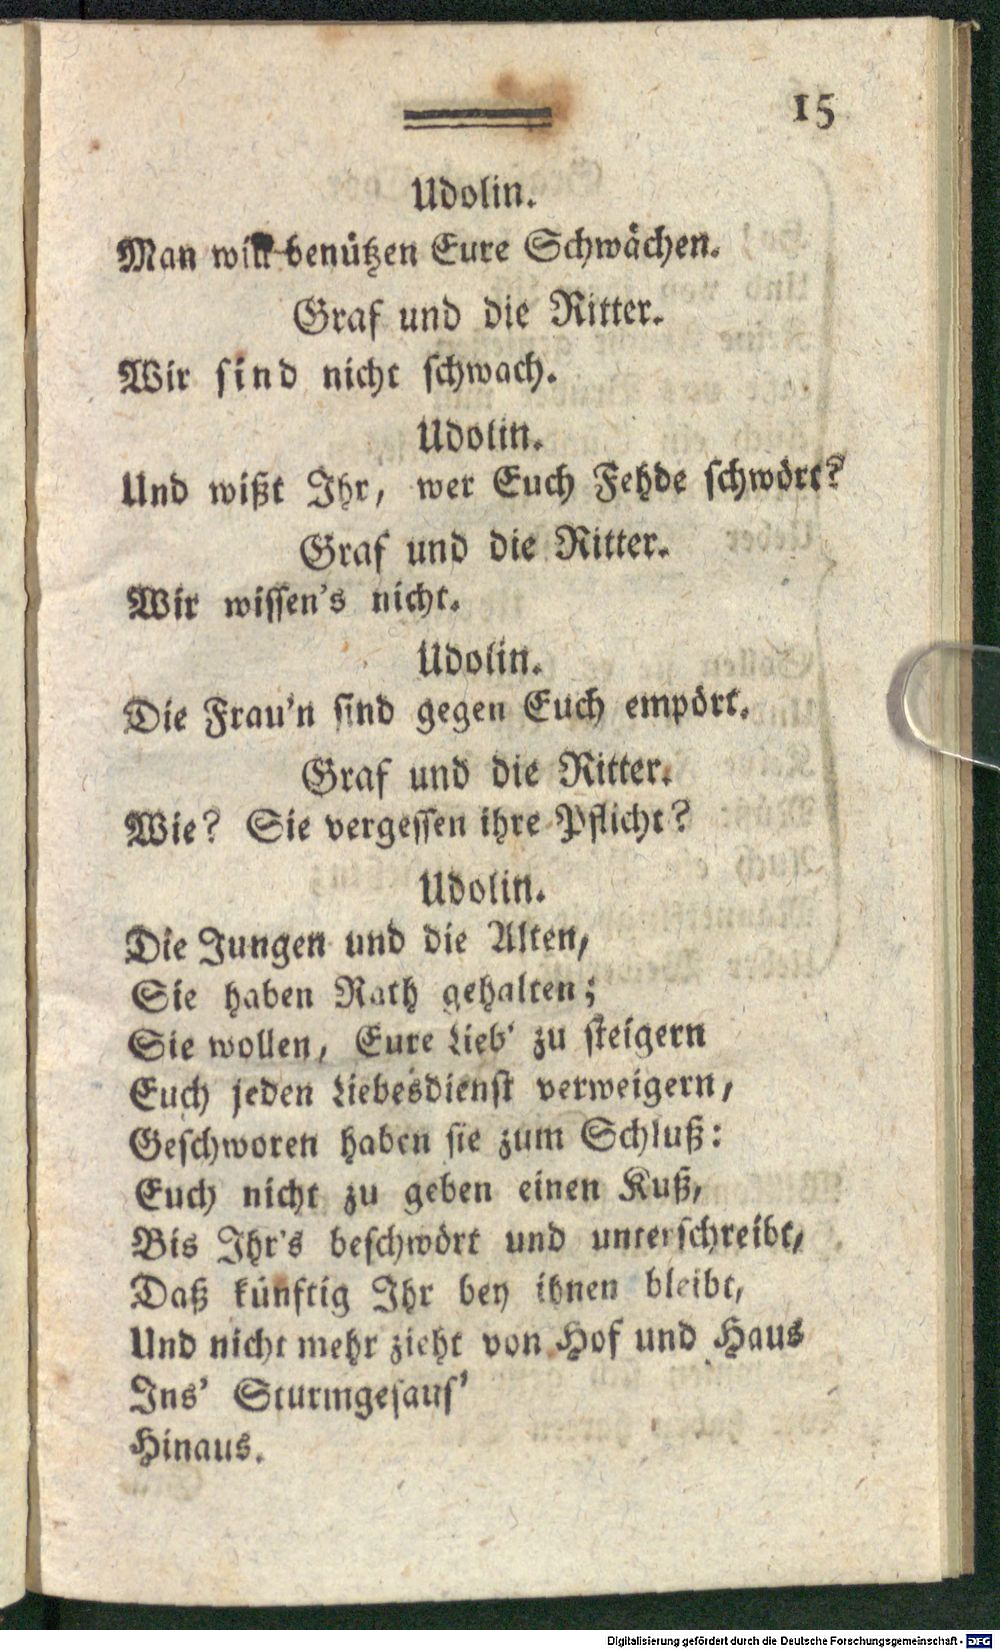 15
Udolin.
Man will benützen Eure Schwächen.
Graf und die Ritter.
Wir sind nicht schwach.
Udolin.
Und wißt Ihr, wer Euch Fehde schwört?
Graf und die Ritter.
Wir wissen's nicht.
Udolin.
Die Frau'n sind gegen Euch empört.
Graf und die Ritter.
Wie? Sie vergessen ihre Pflicht?
Udolin.
Die Jungen und die Alten,
Sie haben Rath gehalten;
Sie wollen, Eure Lieb' zu steigern
Euch jeden Liebesdienst verweigern,
Geschworen haben sie zum Schluß:
Euch nicht zu geben einen Kuß,
Bis Ihr's beschwört und unterschreibt,
Daß künftig Ihr bey ihnen bleibt,
Und nicht mehr zieht von Hof und Haus
Ins' Sturmgesaus'
Hinaus.
Digitalisierung gefördert durch die Deutsche Forschungsgemeinschaft - DFG